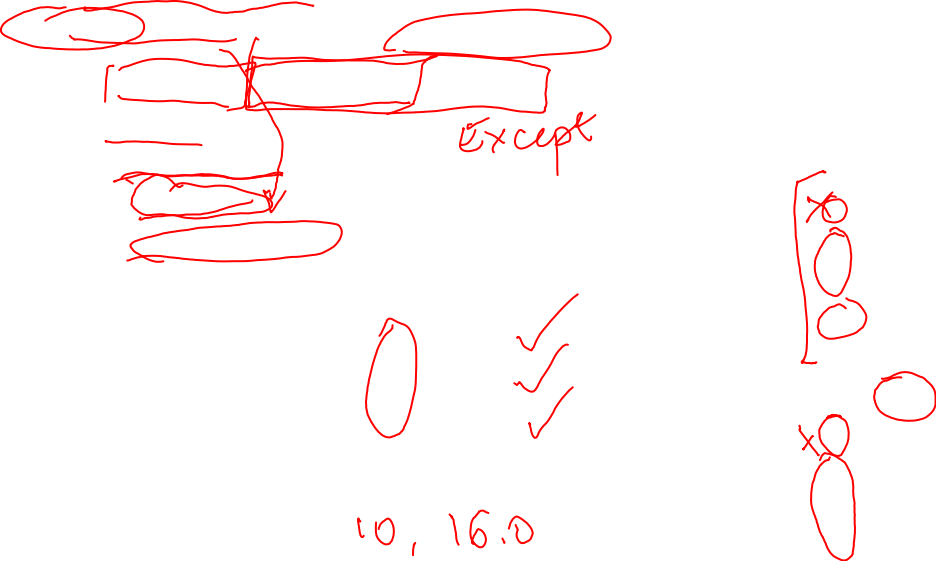 Except
10, 16.0